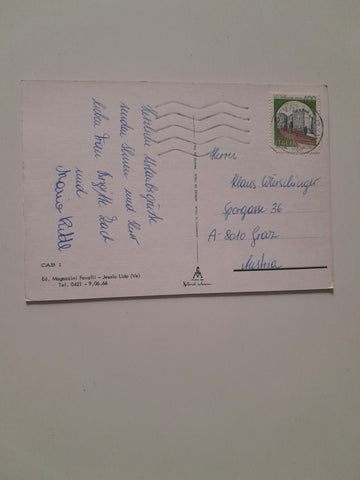 Herzliche Urlaubsgrüße
senden Ihnen und Ihrer
lieben Frau Brigitte
und
ITALIA
400
Herrn
Klaus
Sporgasse 36
A-8010 Graz
Austria
CAB 1
Ed. Magazzini Favalli - Jesolo Lido (Ve)
Tel. 0421 - 9.06.66